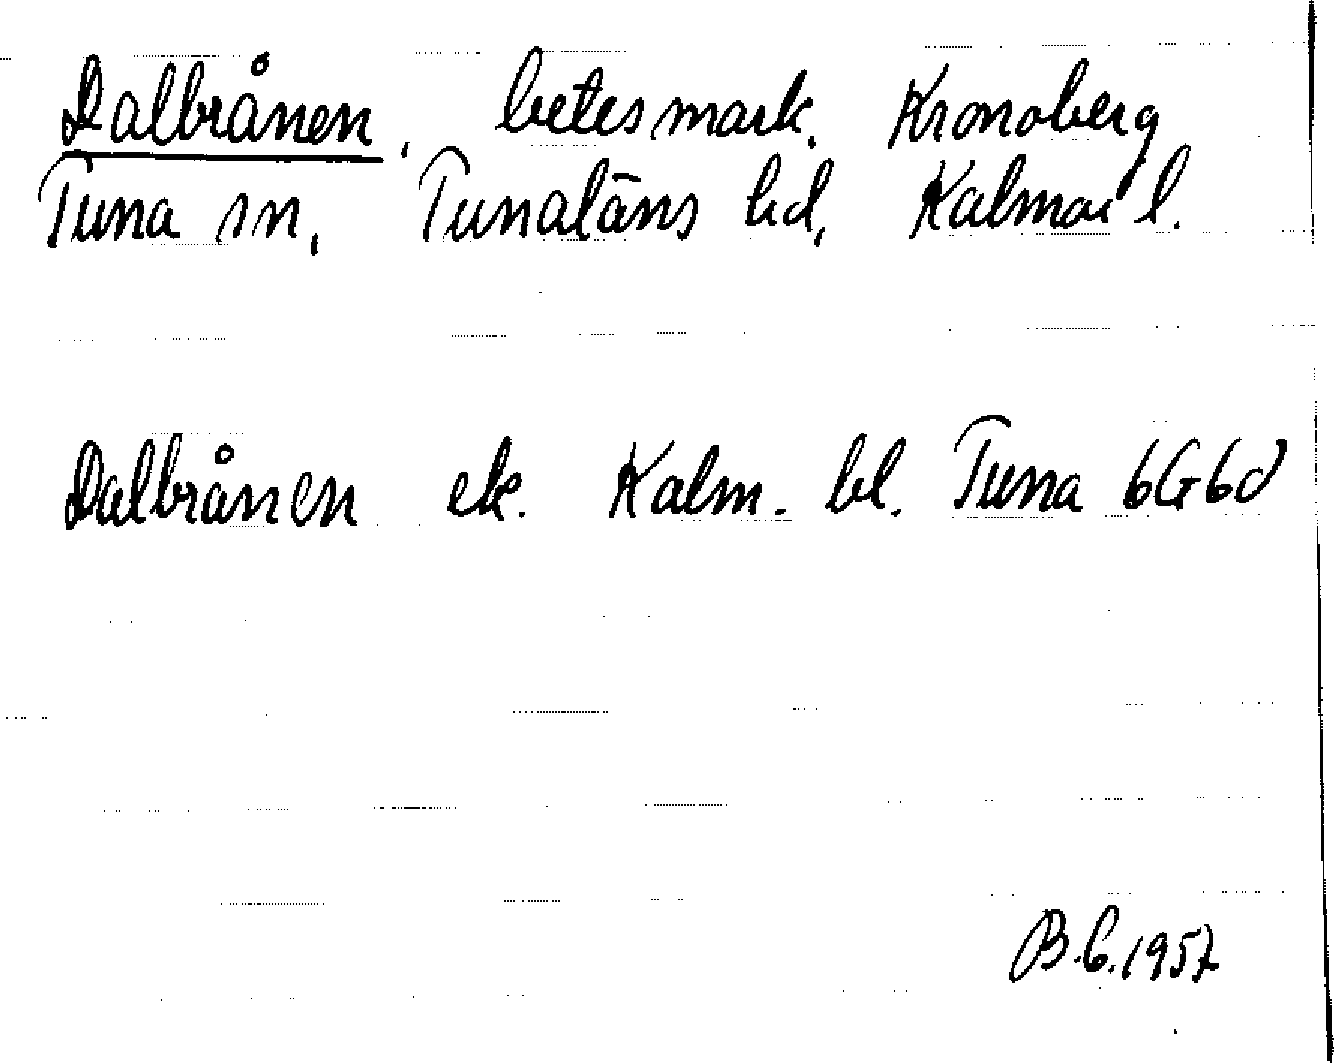 Dalbrånen, betesmark. Kronoberg
Tuna sn, Tunaläns hd, Kalmar l.
Dalbrånen ek. Kalm. bl. Tuna 6G6d
B.C. 1957